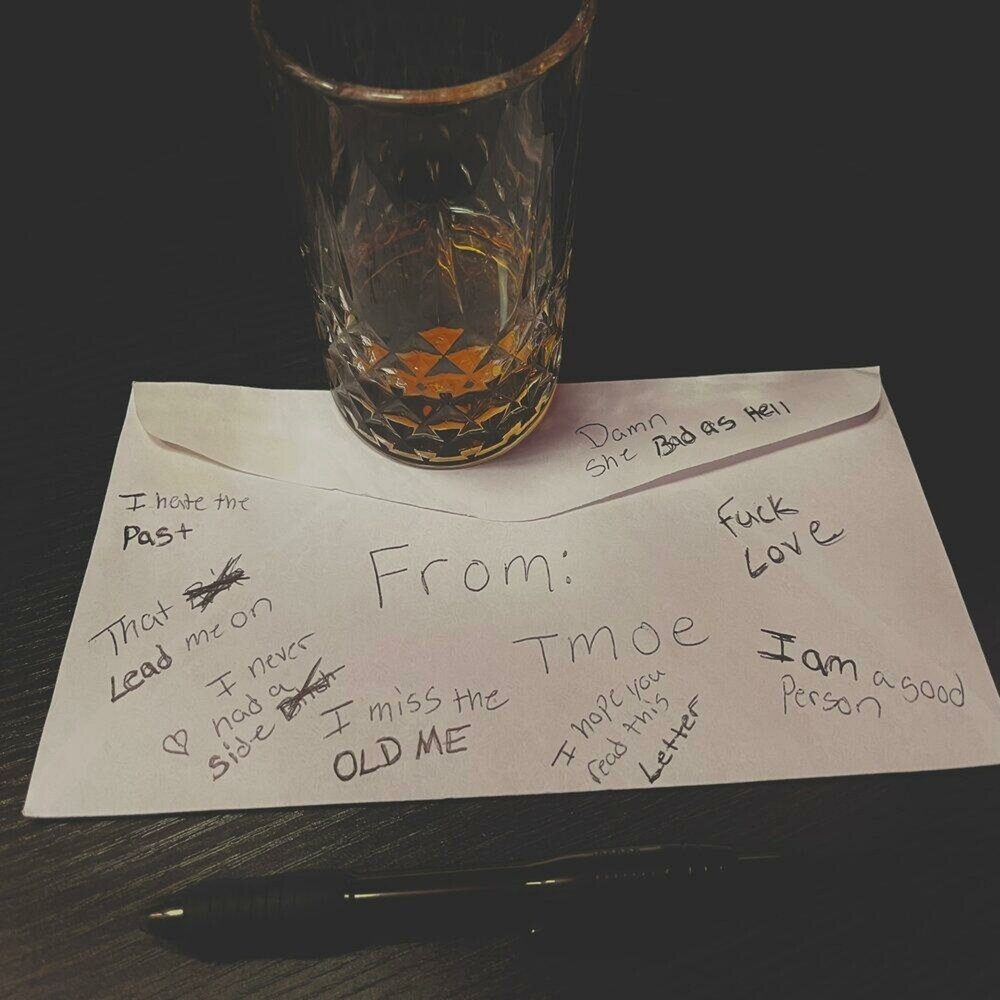 Damn
She Bad as Hell
I hate the
Past
Fuck
Love
From:
Tmoe
That
Lead me on
I never
had a
side Bitch
I miss the
OLD ME
I hope you
read this
Letter
I am a good
Person